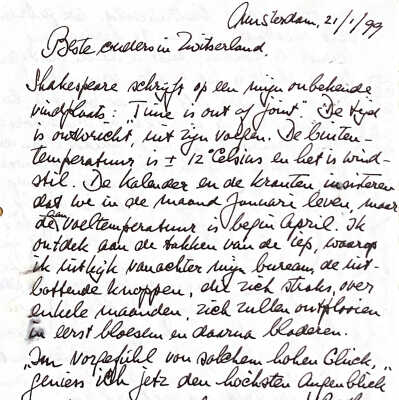 Amsterdam, 21/1/99
Beste ouders in Zwitserland.
Shakespeare schrijft op een mijn onbekende
vindplaats: "Time is out of joint". De tijd
is ontwricht, uit zijn voegen. De buiten-
temperatuur is ± 12° Celsius en het is wind-
stil. De kalender en de kranten insisteren
dat we in de maand Januarie leven, maar
de aanvoeltemperatuur is begin April. Ik
ontdek aan de takken van de iep, waarop
ik uitkijk van achter mijn bureau, de uit-
bottende knoppen, die zich straks, over
enkele maanden, zich zullen ontplooien
in eerst bloesem en daarna bladeren.
"Im Vorgefühl von solchem hohen Glück,
geniess ich jetz den höchsten Augenblick